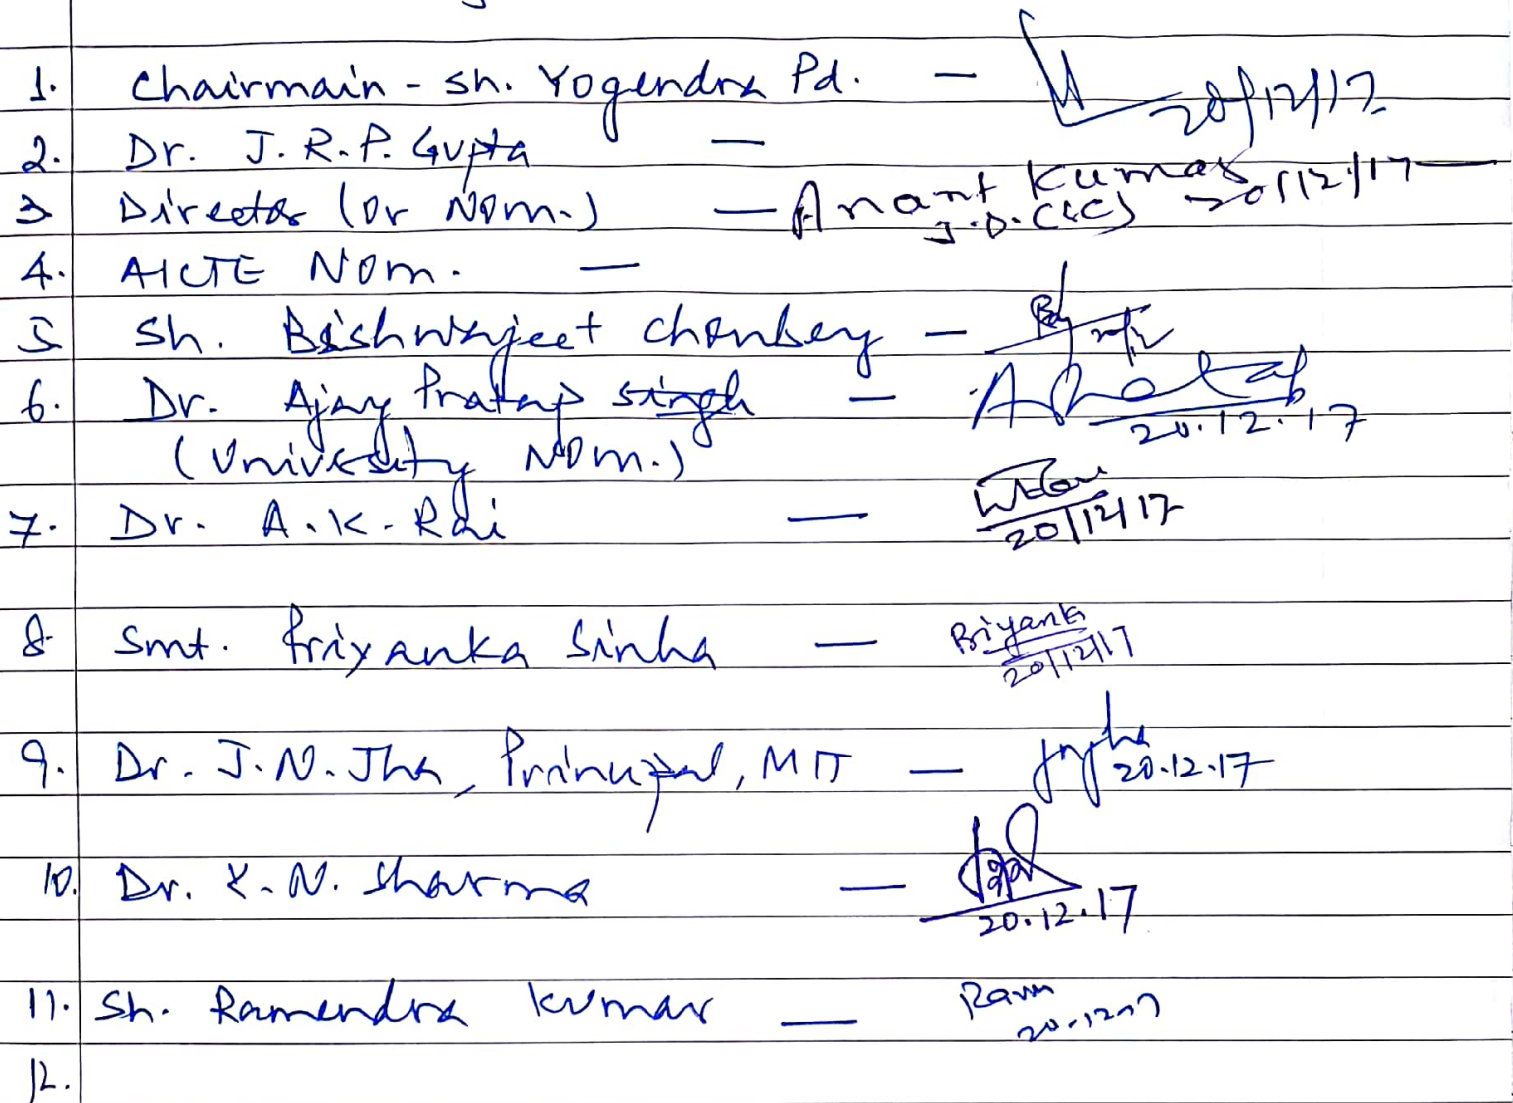 1. Chairmain - Sh. Yogendra Pd. — 20/12/17
2. Dr. J. R. P. Gupta —
3 Director (or Nom.) — Anant Kumar 20/12/17
J.D. (CC)
4. AICTE Nom. —
5 Sh. Bishwajeet Choubey —
6. Dr. Ajay Pratap Singh — APratap
20.12.17
(University Nom.)
7. Dr. A. K. Rai —
20/12/17
8 Smt. Priyanka Sinha — Priyanka
20/12/17
9. Dr. J. N. Jha, Principal, MIT — jnjha
20.12.17
10. Dr. Y. N. Sharma —
20.12.17
11. Sh. Ramendra Kumar — Ram
20.12.17
12.